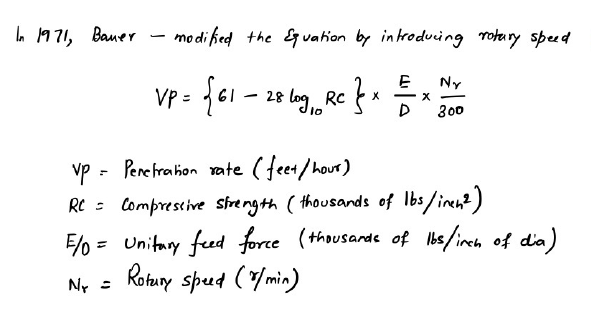 In 1971, Bauer – modified the Equation by introducing rotary speed
VP = {61 – 28 log₁₀ RC} × E/D × Nr/300
VP = Penetration rate (feet/hour)
RC = Compressive strength (thousands of lbs/inch²)
E/D = Unitary feed force (thousands of lbs/inch of dia)
Nr = Rotary speed (r/min)